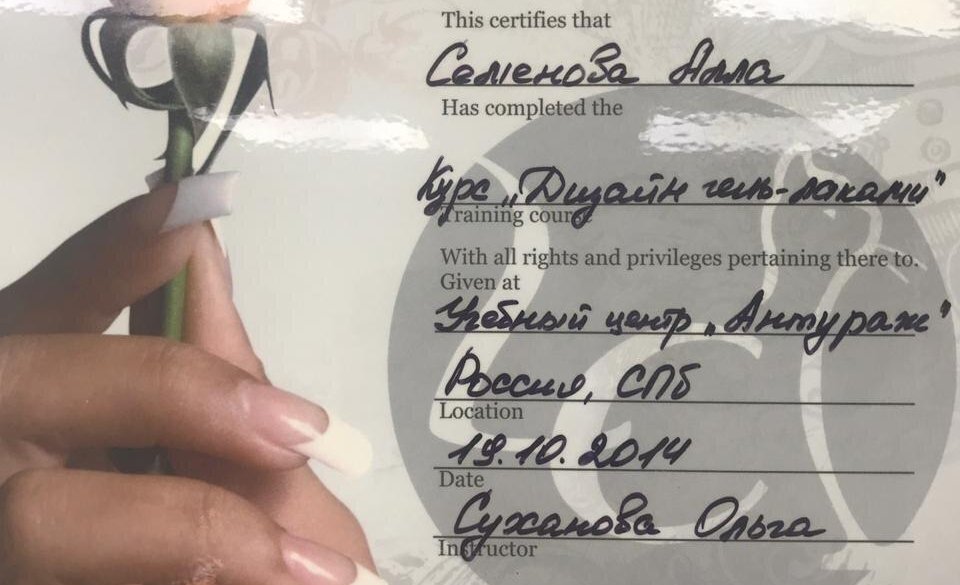 This certifies that
Семенова Алла
Has completed the
Курс „Дизайн гель-лаками"
Training course
With all rights and privileges pertaining there to.
Given at
Учебный центр „Антураж"
Россия, СПб
Location
19.10.2014
Date
Суханова Ольга
Instructor